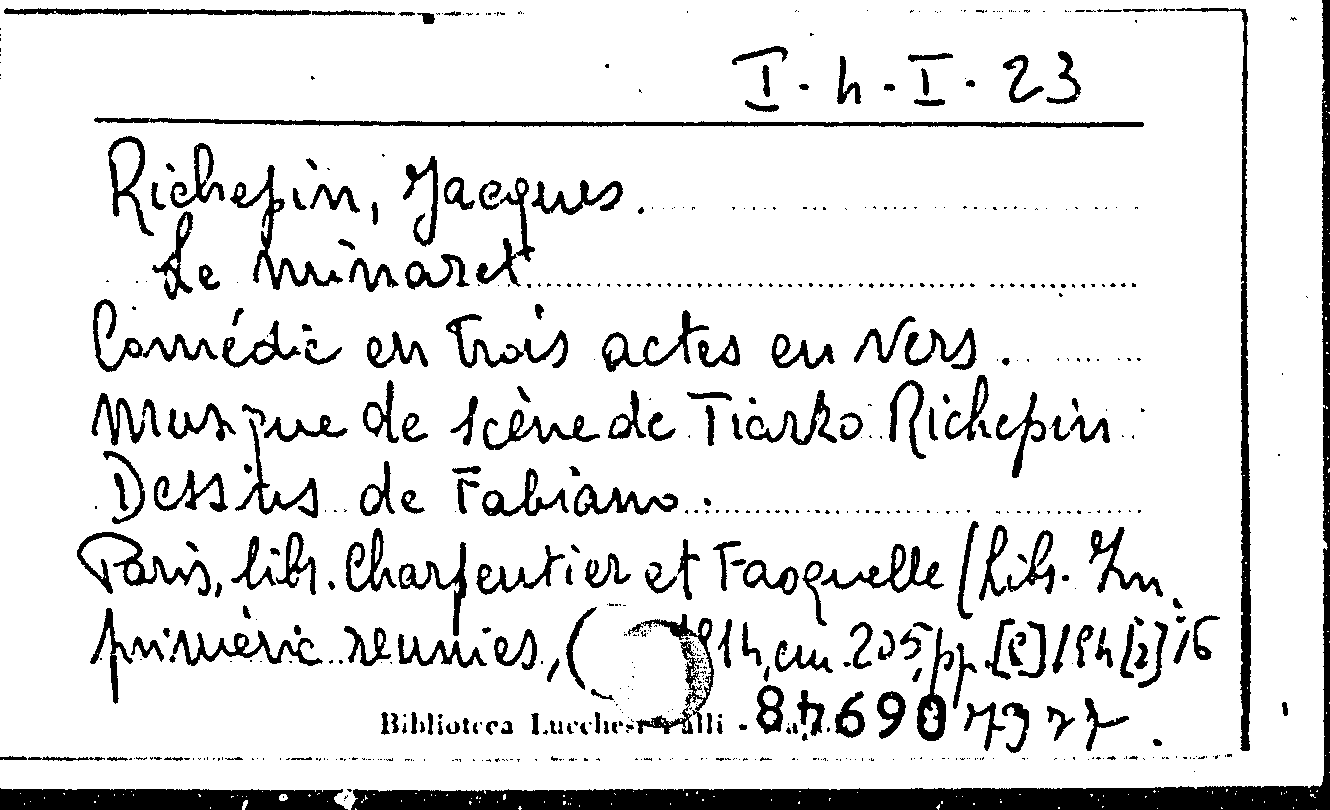 I. h. I. 23
Richepin, Jacques.
Le minaret
Comédie en trois actes en vers.
Musique de scène de Tiarko Richepin
Dessins de Fabiano.
Paris, libr. Charpentier et Fasquelle (Libr. Im
primèrie reunies, ( 1914, cm. 205, pp. [6] 194 [2] 16
Biblioteca Lucchesi Palli - 84690 7977